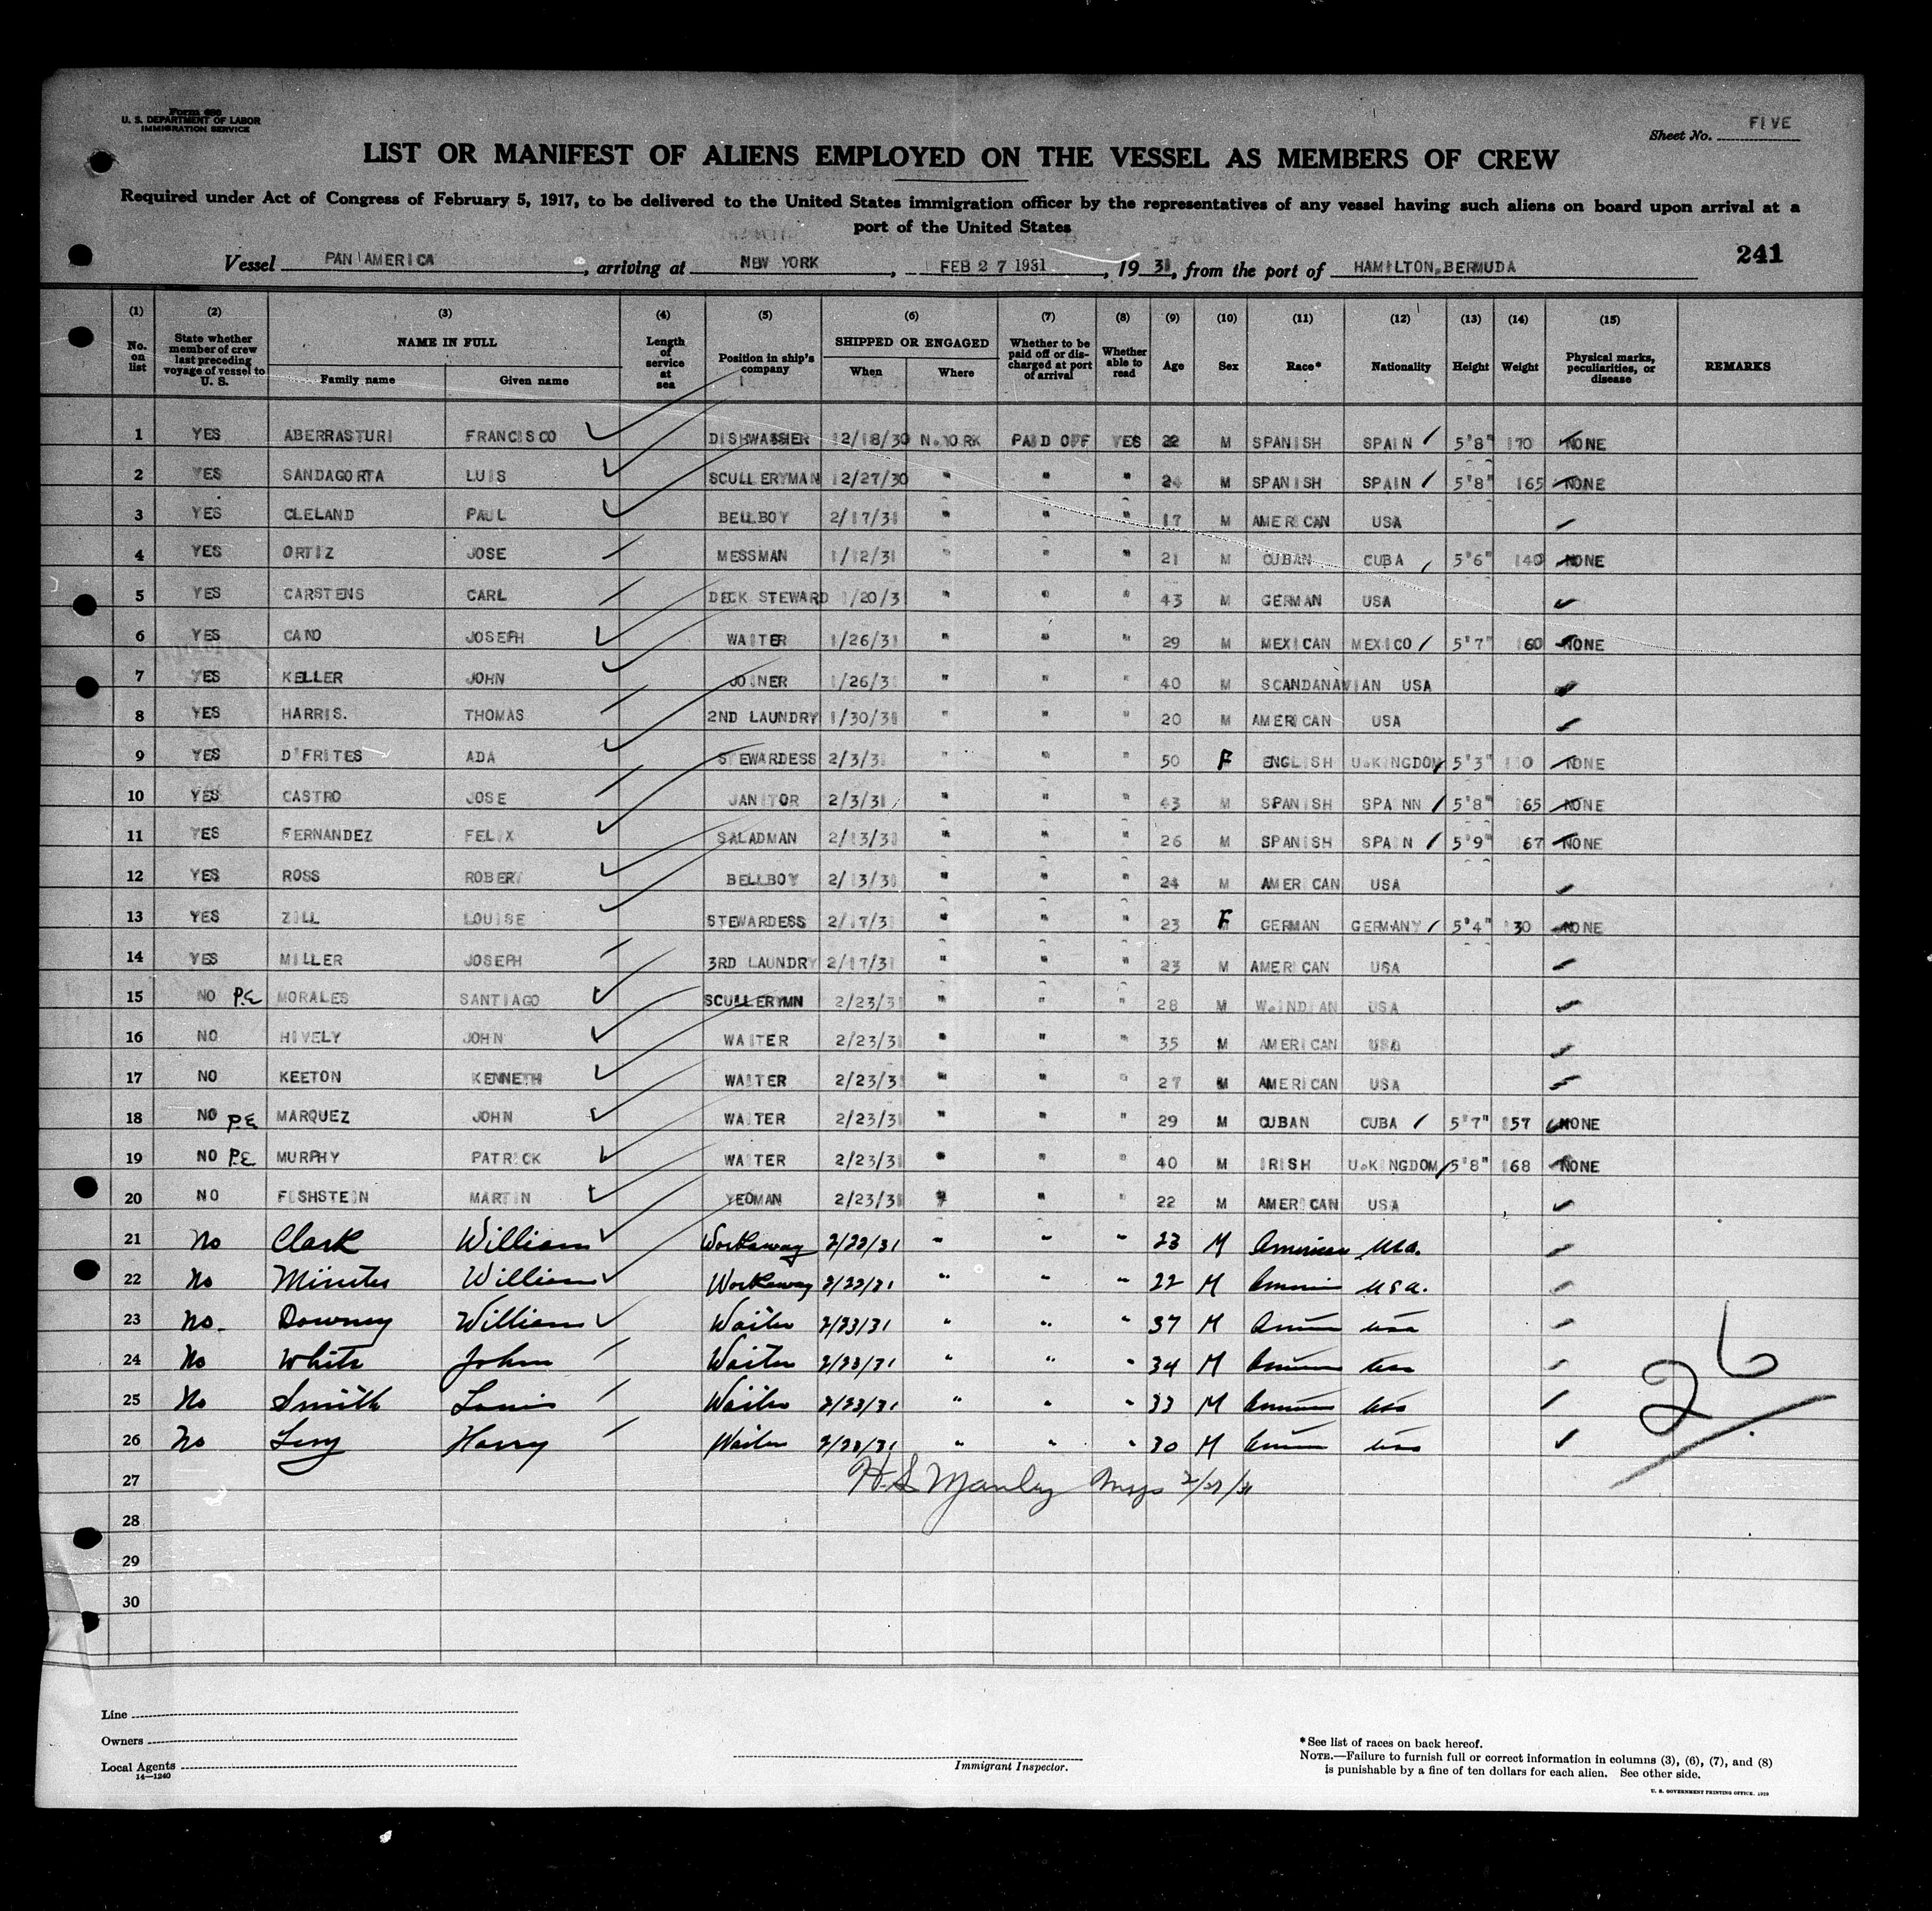 Form 680
U. S. DEPARTMENT OF LABOR
IMMIGRATION SERVICE
Sheet No. FIVE
LIST OR MANIFEST OF ALIENS EMPLOYED ON THE VESSEL AS MEMBERS OF CREW
Required under Act of Congress of February 5, 1917, to be delivered to the United States immigration officer by the representatives of any vessel having such aliens on board upon arrival at a
port of the United States
241
Vessel PAN AMERICA, arriving at NEW YORK, FEB 27 1931, 1931, from the port of HAMILTON,BERMUDA
(1) (2) (3) (4) (5) (6) (7) (8) (9) (10) (11) (12) (13) (14) (15)
No. on list State whether member of crew last preceding voyage of vessel to U. S. NAME IN FULL Family name Given name Length of service at sea Position in ship's company SHIPPED OR ENGAGED When Where Whether to be paid off or discharged at port of arrival Whether able to read Age Sex Race* Nationality Height Weight Physical marks, peculiarities, or disease REMARKS
1 YES ABERRASTURI FRANCISCO DISHWASHER 12/18/30 N.YORK PAID OFF YES 22 M SPANISH SPAIN 5'8" 170 NONE
2 YES SANDAGORTA LUIS SCULLERYMAN 12/27/30 " " " 24 M SPANISH SPAIN 5'8" 165 NONE
3 YES CLELAND PAUL BELLBOY 2/17/31 " " " 17 M AMERICAN USA
4 YES ORTIZ JOSE MESSMAN 1/12/31 " " " 21 M CUBAN CUBA 5'6" 140 NONE
5 YES CARSTENS CARL DECK STEWARD 1/20/3 " " " 43 M GERMAN USA
6 YES CANO JOSEPH WAITER 1/26/31 " " " 29 M MEXICAN MEXICO 5'7" 160 NONE
7 YES KELLER JOHN JOINER 1/26/31 " " " 40 M SCANDANAVIAN USA
8 YES HARRIS. THOMAS 2ND LAUNDRY 1/30/31 " " " 20 M AMERICAN USA
9 YES D'FRITES ADA STEWARDESS 2/3/31 " " " 50 F ENGLISH U.KINGDOM 5'3" NONE
10 YES CASTRO JOSE JANITOR 2/3/31 " " " 43 M SPANISH SPAINN 5'8" 165 NONE
11 YES FERNANDEZ FELIX SALADMAN 2/13/31 " " " 26 M SPANISH SPAIN 5'9" 167 NONE
12 YES ROSS ROBERT BELLBOY 2/13/31 " " " 24 M AMERICAN USA
13 YES ZILL LOUISE STEWARDESS 2/17/31 " " " 23 F GERMAN GERMANY 5'4" 130 NONE
14 YES MILLER JOSEPH 3RD LAUNDRY 2/17/31 " " " 23 M AMERICAN USA
15 NO P.E MORALES SANTIAGO SCULLERYMN 2/23/31 " " " 28 M W.INDIAN USA
16 NO HIVELY JOHN WAITER 2/23/31 " " " 35 M AMERICAN USA
17 NO KEETON KENNETH WAITER 2/23/31 " " " 27 M AMERICAN USA
18 NO P.E MARQUEZ JOHN WAITER 2/23/31 " " " 29 M CUBAN CUBA 5'7" 157 NONE
19 NO P.E MURPHY PATRICK WAITER 2/23/31 " " " 40 M IRISH U.KINGDOM 5'8" 168 NONE
20 NO FISHSTEIN MARTIN YEOMAN 2/23/31 " " " 22 M AMERICAN USA
21 No Clark William Workaway 2/23/31 " " " 23 M American USA.
22 No William Workaway 2/23/31 " " " 22 M American USA.
23 No. Downey William Waiter 2/23/31 " " " 37 M American USA
24 No White John Waiter 2/23/31 " " " 34 M American USA
25 No Smith Louis Waiter 2/23/31 " " " 33 M American USA
26 No Levy Harry Waiter 2/23/31 " " " 30 M American USA
26
27 H.S. Manley 2/27/31
28
29
30
Line
Owners
Local Agents
14—1240
Immigrant Inspector.
*See list of races on back hereof.
NOTE.—Failure to furnish full or correct information in columns (3), (6), (7), and (8)
is punishable by a fine of ten dollars for each alien. See other side.
U. S. GOVERNMENT PRINTING OFFICE. 1929